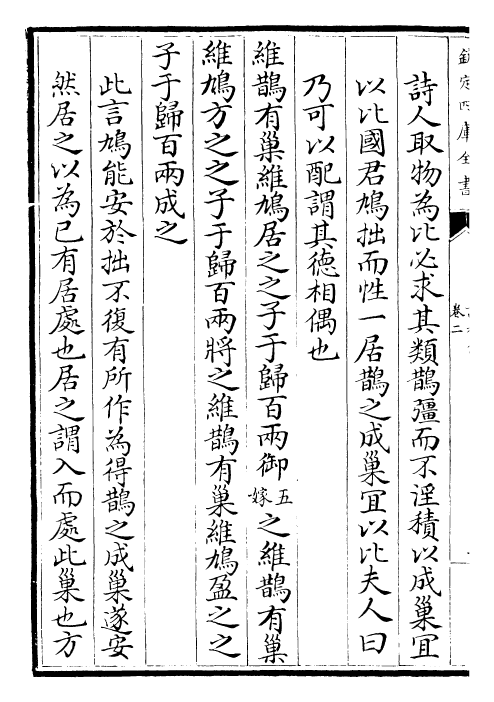 欽定四庫全書
卷二
詩人取物為比必求其類鵲彊而不淫積以成巢冝
以比國君鳩拙而性一居鵲之成巢冝以比夫人曰
乃可以配謂其德相偶也
維鵲有巢維鳩居之之子于歸百兩御五嫁之維鵲有巢
維鳩方之之子于歸百兩將之維鵲有巢維鳩盈之之
子于歸百兩成之
此言鳩能安於拙不復有所作為得鵲之成巢遂安
然居之以為已有居處也居之謂入而處此巢也方